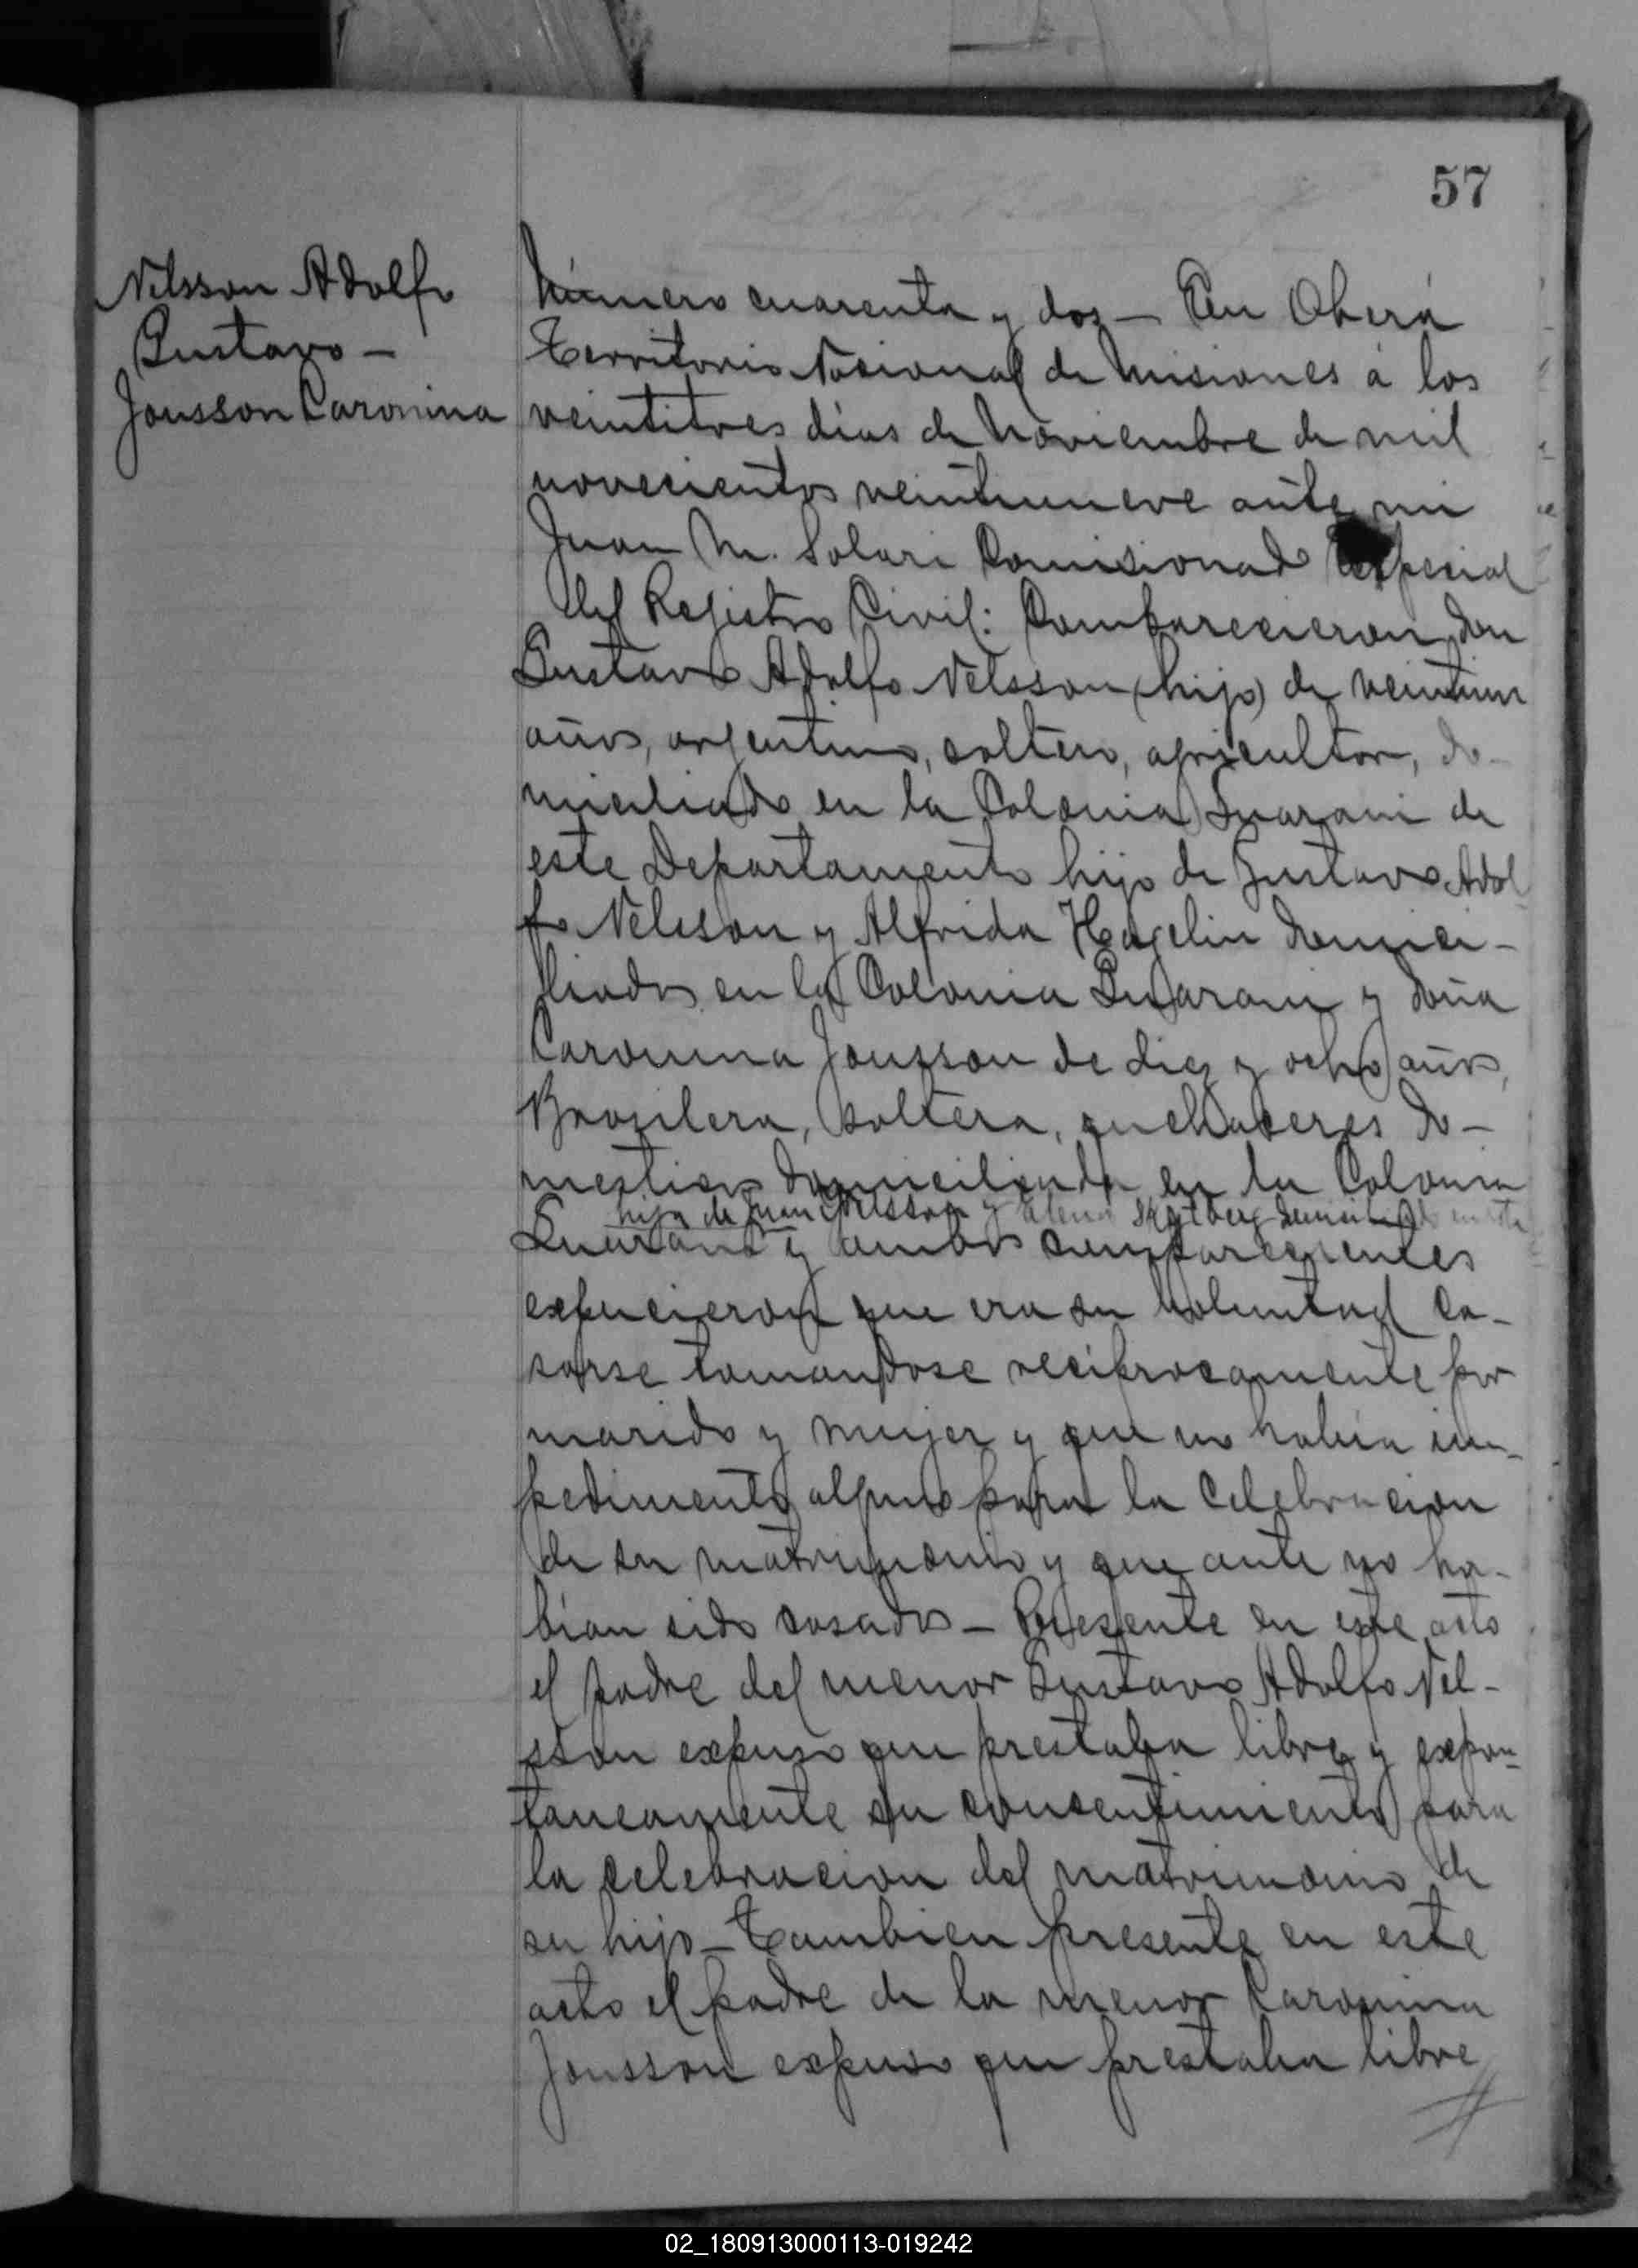 57
Nelsson Adolfo
Gustavo —
Jonsson Caronina
Número cuarenta y dos — En Oberá
Territorio Nacional de Misiones á los
veintitres días de Noviembre de mil
novecientos veintinueve ante mi
Juan M. Solari Comisionado Especial
del Registro Civil: Comparecieron don
Gustavo Adolfo Nelsson (hijo) de veintiun
años, argentino, soltero, agricultor, do-
miciliado en la Colonia Guarani de
este Departamento hijo de Gustavo Adol
fo Nelsson y Alfrida Hagelin domici-
liados en la Colonia Guarani y doña
Caronina Jonsson de diez y ocho años,
Brasilera, soltera, quehaceres do-
mesticos domiciliada en la Colonia
hija de Juan y domiciliados en esta
Guarani y ambos comparecientes
expucieron que era su voluntad ca-
sarse tomandose reciprocamente por
marido y mujer y que no habia im-
pedimento alguno para la celebracion
de su matrimonio y que ante no ha-
bian sido casados — Presente en este acto
el padre del menor Gustavo Adolfo Nel-
sson expuso que prestaba libre y expon-
taneamente su consentimiento para
la celebracion del matrimonio de
su hijo — Tambien presente en este
acto el padre de la menor Caronina
Jonsson expuso que prestaba libre
02_180913000113-019242